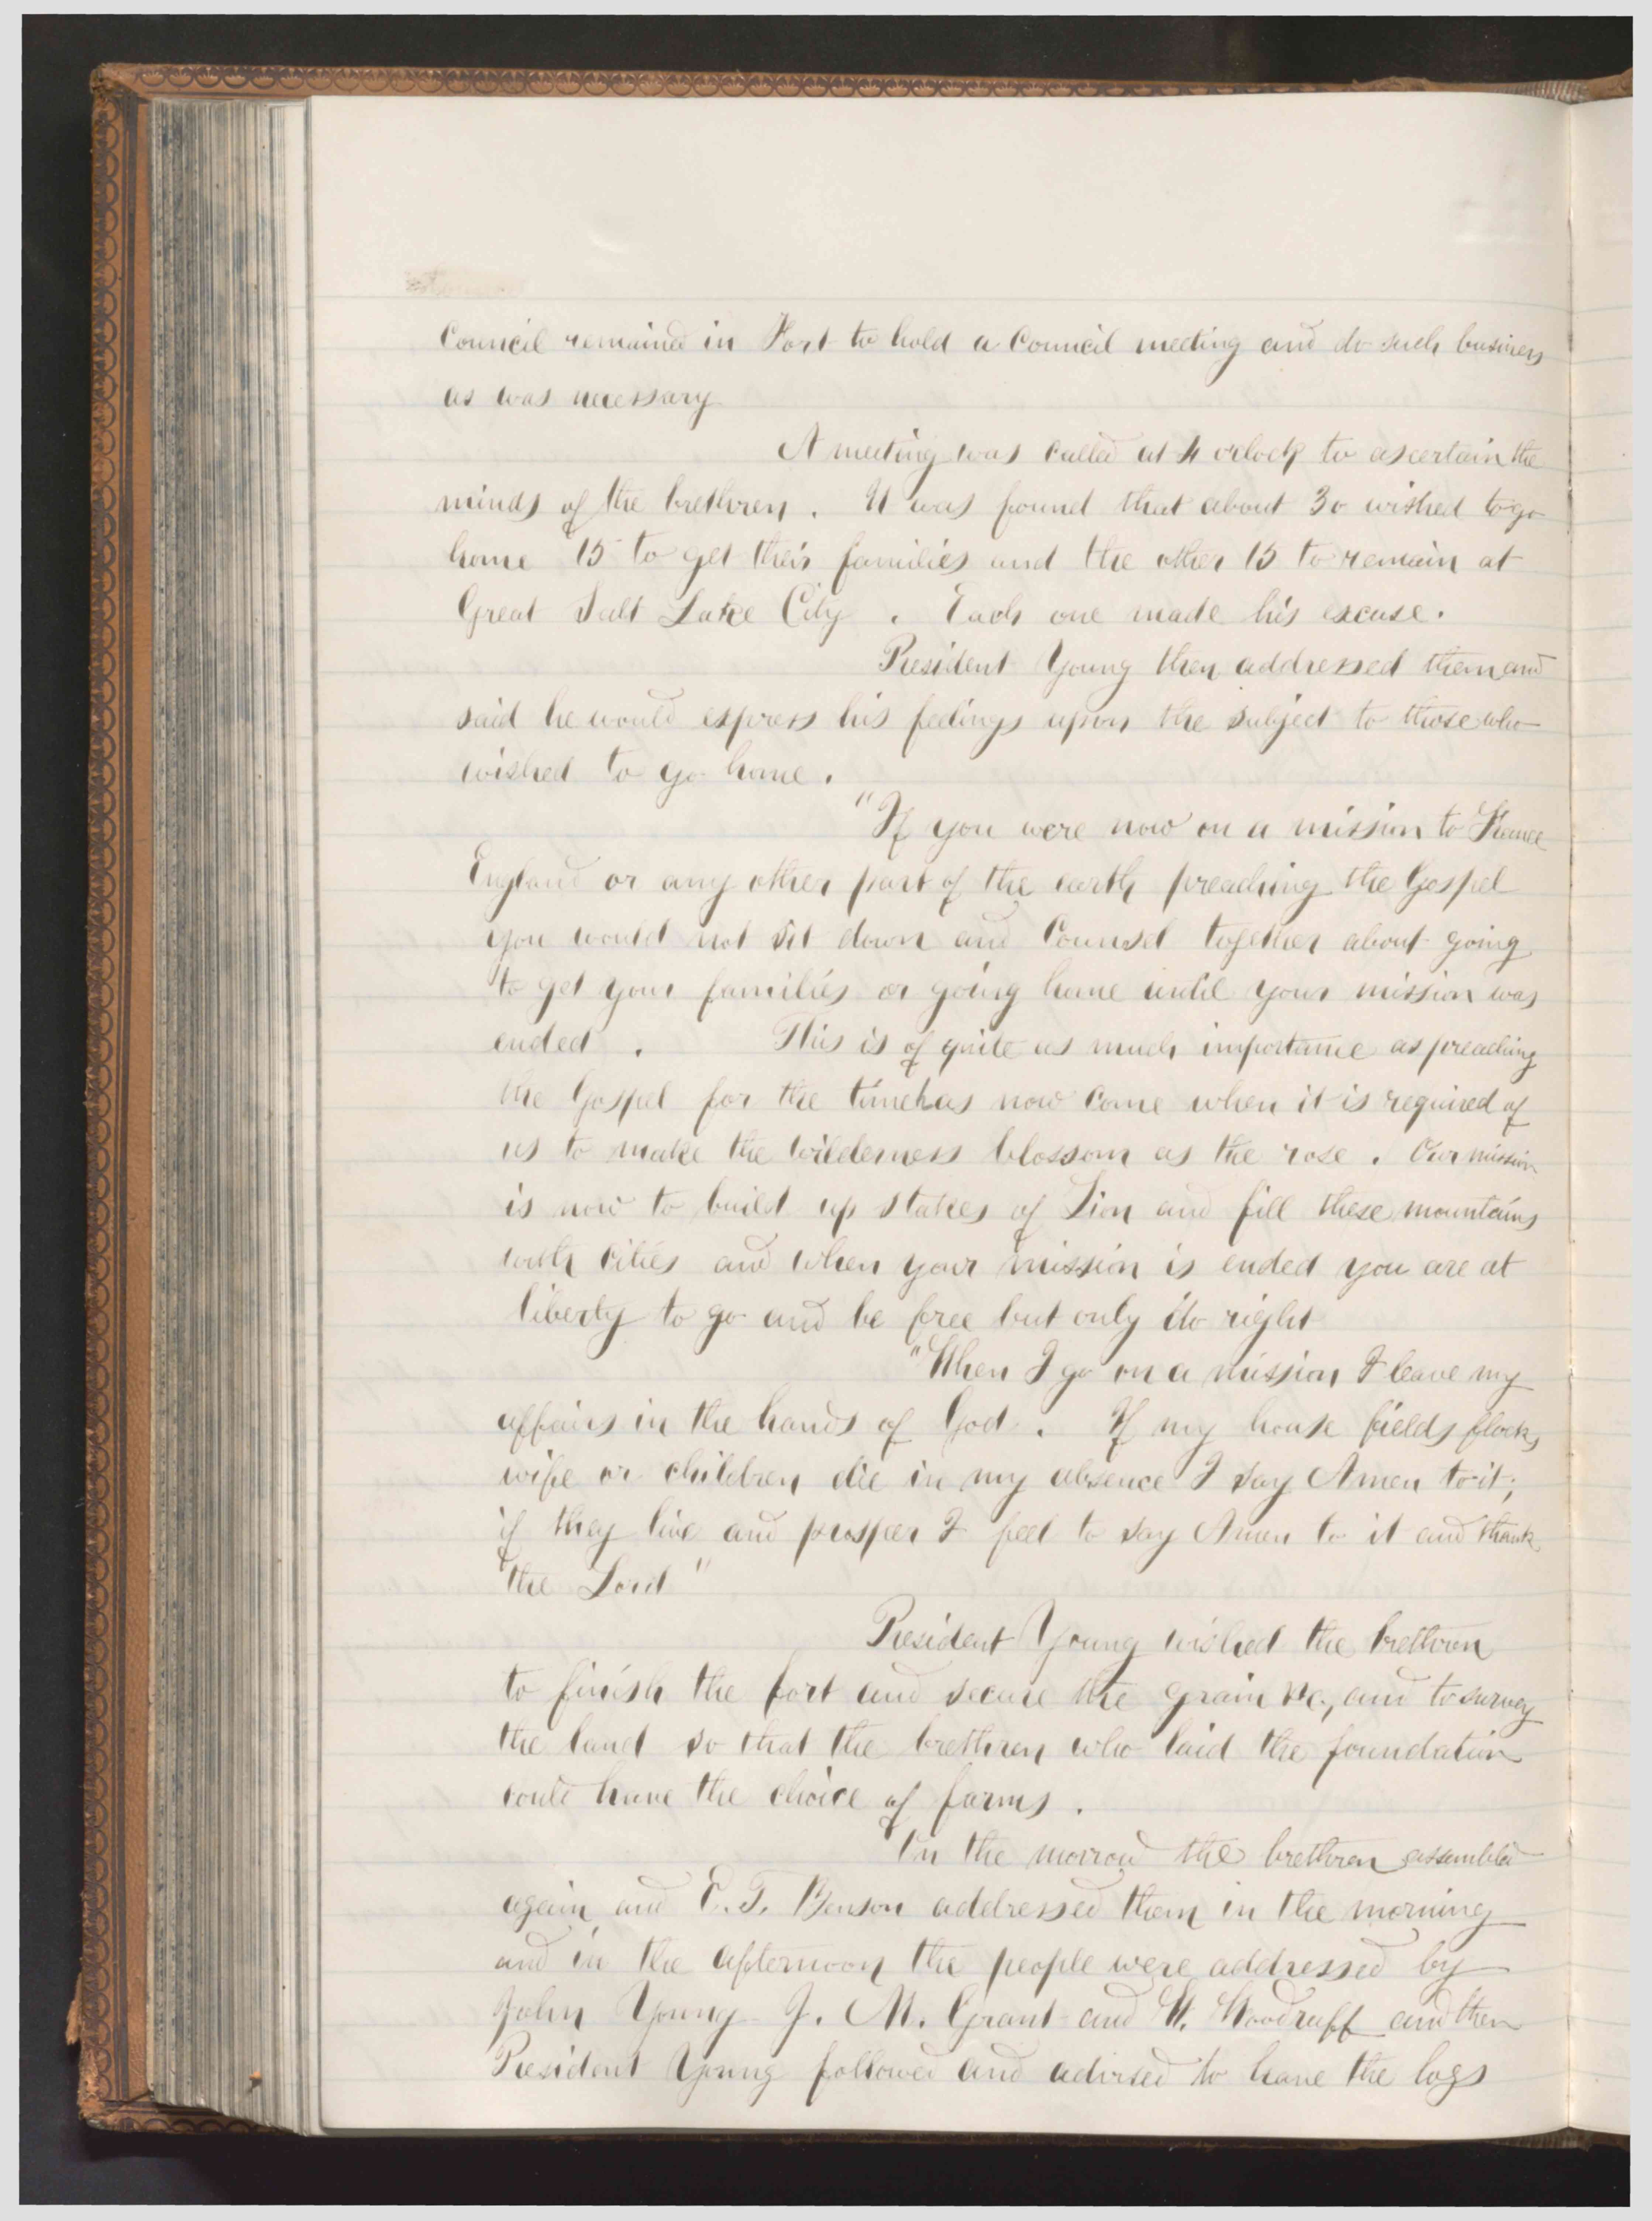 Council remained in Fort to hold a Council meeting and do such business
as was necessary
A meeting was called at 4 oclock to ascertain the
minds of the brethren . It was found that about 30 wished to go
home 15 to get their families and the other 15 to remain at
Great Salt Lake City . Each one made his excuse .
President Young then addressed them and
said he would express his feelings upon the subject to those who
wished to go home .
"If you were now on a mission to France
England or any other part of the earth preaching the Gospel
you would not sit down and Counsel together about going
to get your families or going home until your mission was
ended . This is of quite as much importance as preaching
the Gospel for the time has now come when it is required of
us to make the wilderness blossom as the rose . Our mission
is now to build up stakes of Zion and fill these mountains
with cities and when your mission is ended you are at
liberty to go and be free but only do right
"When I go on a mission I leave my
affairs in the hands of God . If my house fields flocks,
wife or children die in my absence I say Amen to it ;
if they live and prosper I feel to say Amen to it and thank
the Lord "
President Young wished the brethren
to finish the fort and secure the grain &c., and to survey
the land so that the brethren who laid the foundation
could have the choice of farms .
On the morrow the brethren assembled
again and E. T. Benson addressed them in the morning
and in the afternoon the people were addressed by
John Young J. M. Grant and W. Woodruff and then
President Young followed and advised to leave the logs